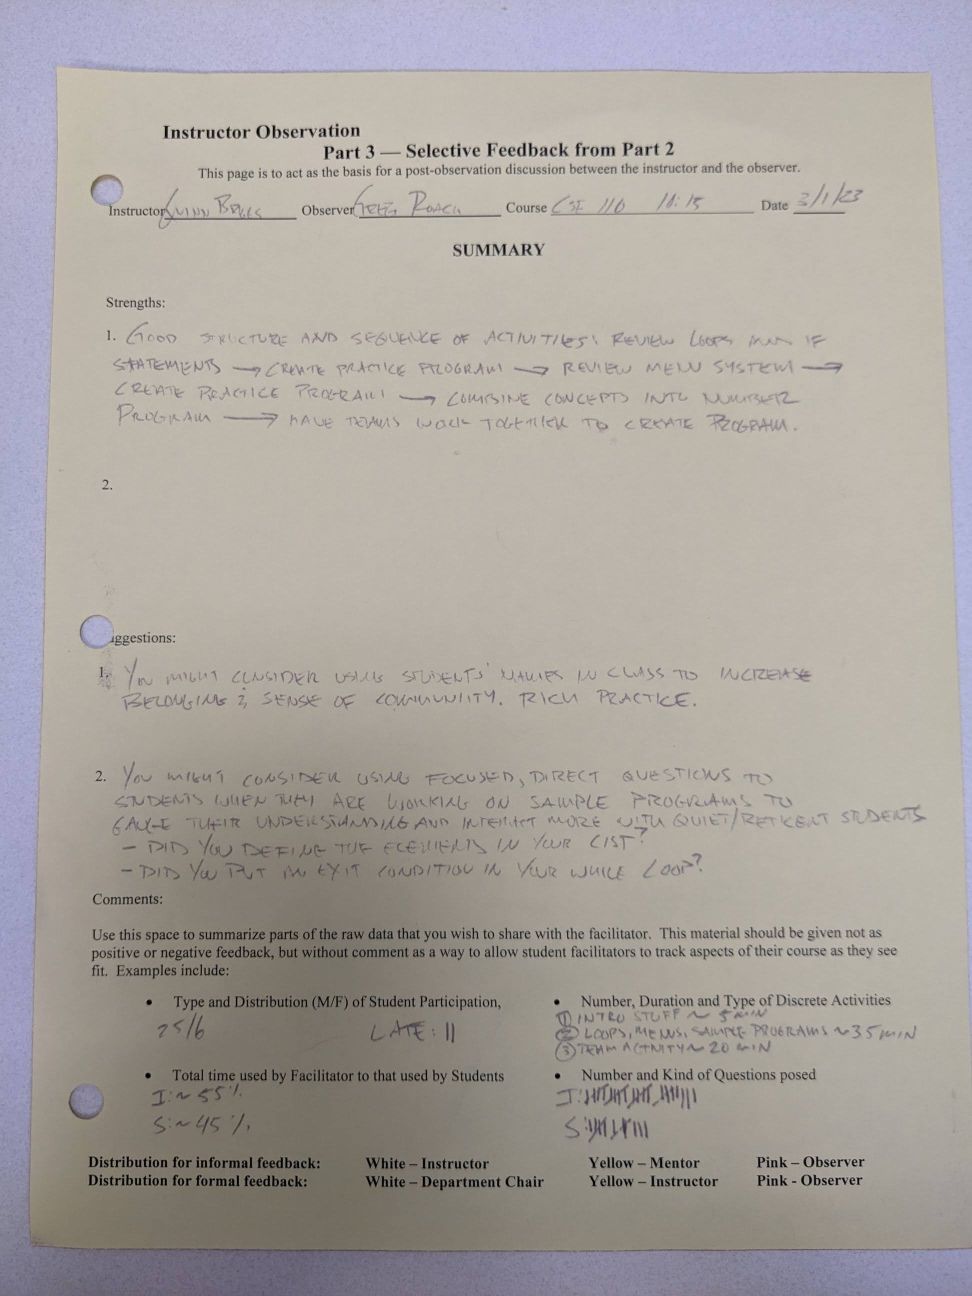 Instructor Observation
Part 3 — Selective Feedback from Part 2
This page is to act as the basis for a post-observation discussion between the instructor and the observer.
Instructor Quinn Observer Greg Roach Course CSE 110 Date 3/1/23
SUMMARY
Strengths:
1. GOOD STRUCTURE AND SEQUENCE OF ACTIVITIES: REVIEW LOOPS IF
STATEMENTS → CREATE PRACTICE PROGRAM → REVIEW MENU SYSTEM →
CREATE PRACTICE PROGRAM → COMBINE CONCEPTS INTO NUMBER
PROGRAM → HAVE TEAMS WORK TOGETHER TO CREATE PROGRAM.
2.
ggestions:
1. YOU MIGHT CONSIDER USING STUDENTS' NAMES IN CLASS TO INCREASE
BELONGING & SENSE OF COMMUNITY. RICH PRACTICE.
2. YOU MIGHT CONSIDER USING FOCUSED, DIRECT QUESTIONS TO
STUDENTS WHEN THEY ARE WORKING ON SAMPLE PROGRAMS TO
GAUGE THEIR UNDERSTANDING AND INTERACT MORE WITH QUIET/RETICENT STUDENTS
- DID YOU DEFINE THE ELEMENTS IN YOUR LIST?
- DID YOU PUT AN EXIT CONDITION IN YOUR WHILE LOOP?
Comments:
Use this space to summarize parts of the raw data that you wish to share with the facilitator. This material should be given not as
positive or negative feedback, but without comment as a way to allow student facilitators to track aspects of their course as they see
fit. Examples include:
• Type and Distribution (M/F) of Student Participation,
25/6 LATE: 11
• Number, Duration and Type of Discrete Activities
① INTRO STUFF ~ 5 MIN
② LOOPS, MENUS, SAMPLE PROGRAMS ~ 35 MIN
③ TEAM ACTIVITY ~ 20 MIN
• Total time used by Facilitator to that used by Students
I: ~ 55%
S: ~ 45%
• Number and Kind of Questions posed
I:
S:
Distribution for informal feedback: White – Instructor Yellow – Mentor Pink – Observer
Distribution for formal feedback: White – Department Chair Yellow – Instructor Pink - Observer